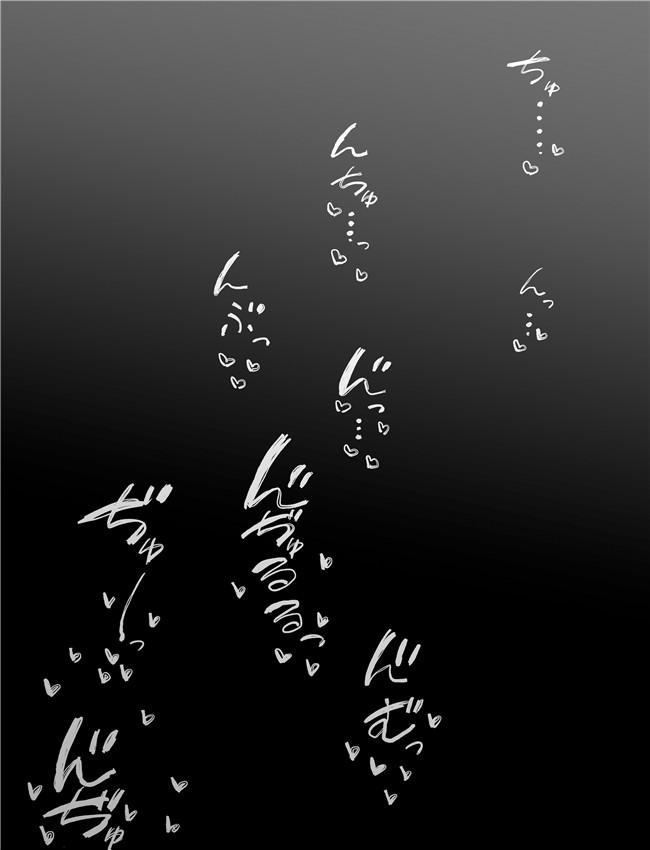 ちゅ……♡♡
んっ…♡♡
んちゅ♡…っ♡♡
ん゙っ♡…♡♡♡
んぶっ♡♡♡
ん゙ぢゅるるっ♡♡♡♡♡
ん゙むっ♡♡♡♡♡
ぢゅーっ♡♡♡♡♡♡♡
ん゙ぢゅ♡♡♡♡♡♡